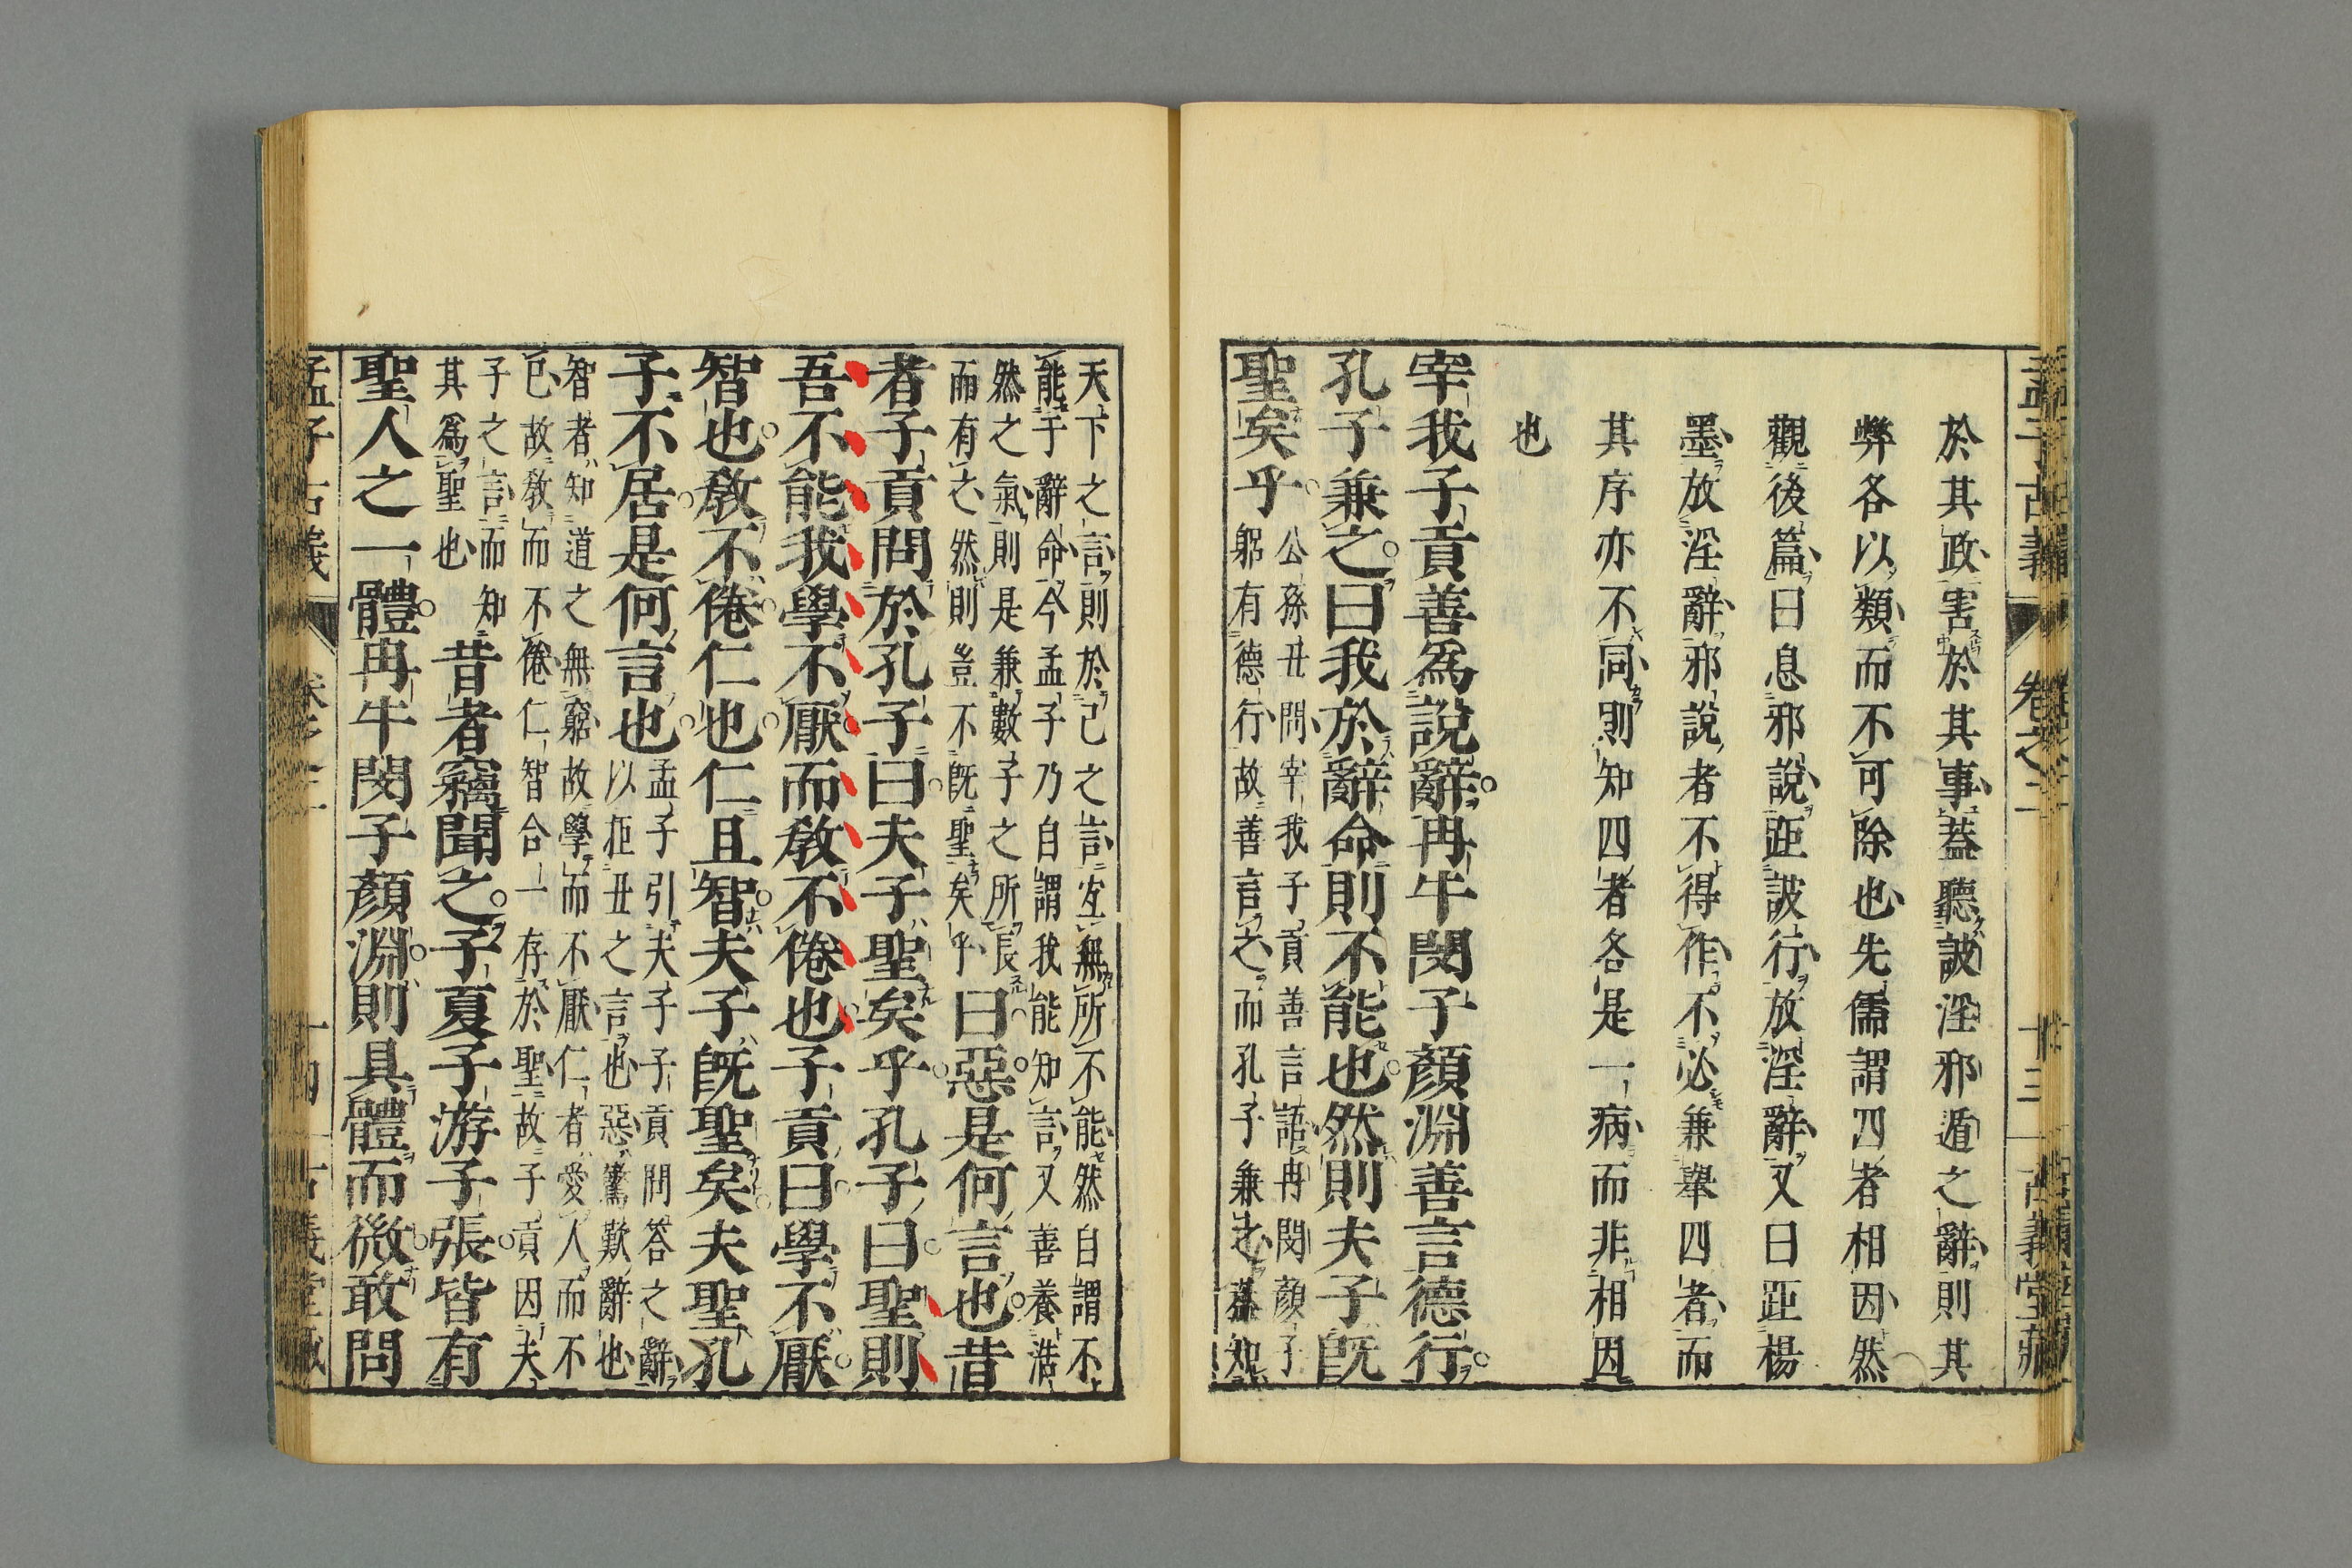 孟子古義 卷之二 十三 古義堂藏
於其政害於其事蓋聽詖淫邪遁之辭則其
弊各以類而不可除也先儒謂四者相因然
觀後篇曰息邪說距詖行放淫辭又曰距楊
墨放淫辭邪說者不得作不必兼舉四者而
其序亦不同則知四者各是一病而非相因
也
宰我子貢善爲說辭冉牛閔子顏淵善言德行
孔子兼之曰我於辭命則不能也然則夫子旣
聖矣乎
公孫丑問宰我子貢善言語冉閔顏子
躬有德行故善言之而孔子兼之葢知
天下之言則於己之言宜無所不能然自謂不
能于辭命今孟子乃自謂我能知言又善養浩
然之氣則是兼數子之所長
而有之然則豈不旣聖矣乎
曰惡是何言也昔
者子貢問於孔子曰夫子聖矣乎孔子曰聖則
吾不能我學不厭而敎不倦也子貢曰學不厭
智也敎不倦仁也仁且智夫子旣聖矣夫聖孔
子不居是何言也
孟子引夫子子貢問答之辭
以拒丑之言也惡驚歎辭也
智者知道之無窮故學而不厭仁者愛人而不
已故敎而不倦仁智合一存於聖故子貢因夫
子之言而知
其爲聖也
昔者竊聞之子夏子游子張皆有
聖人之一體冉牛閔子顏淵則具體而微敢問
孟子古義